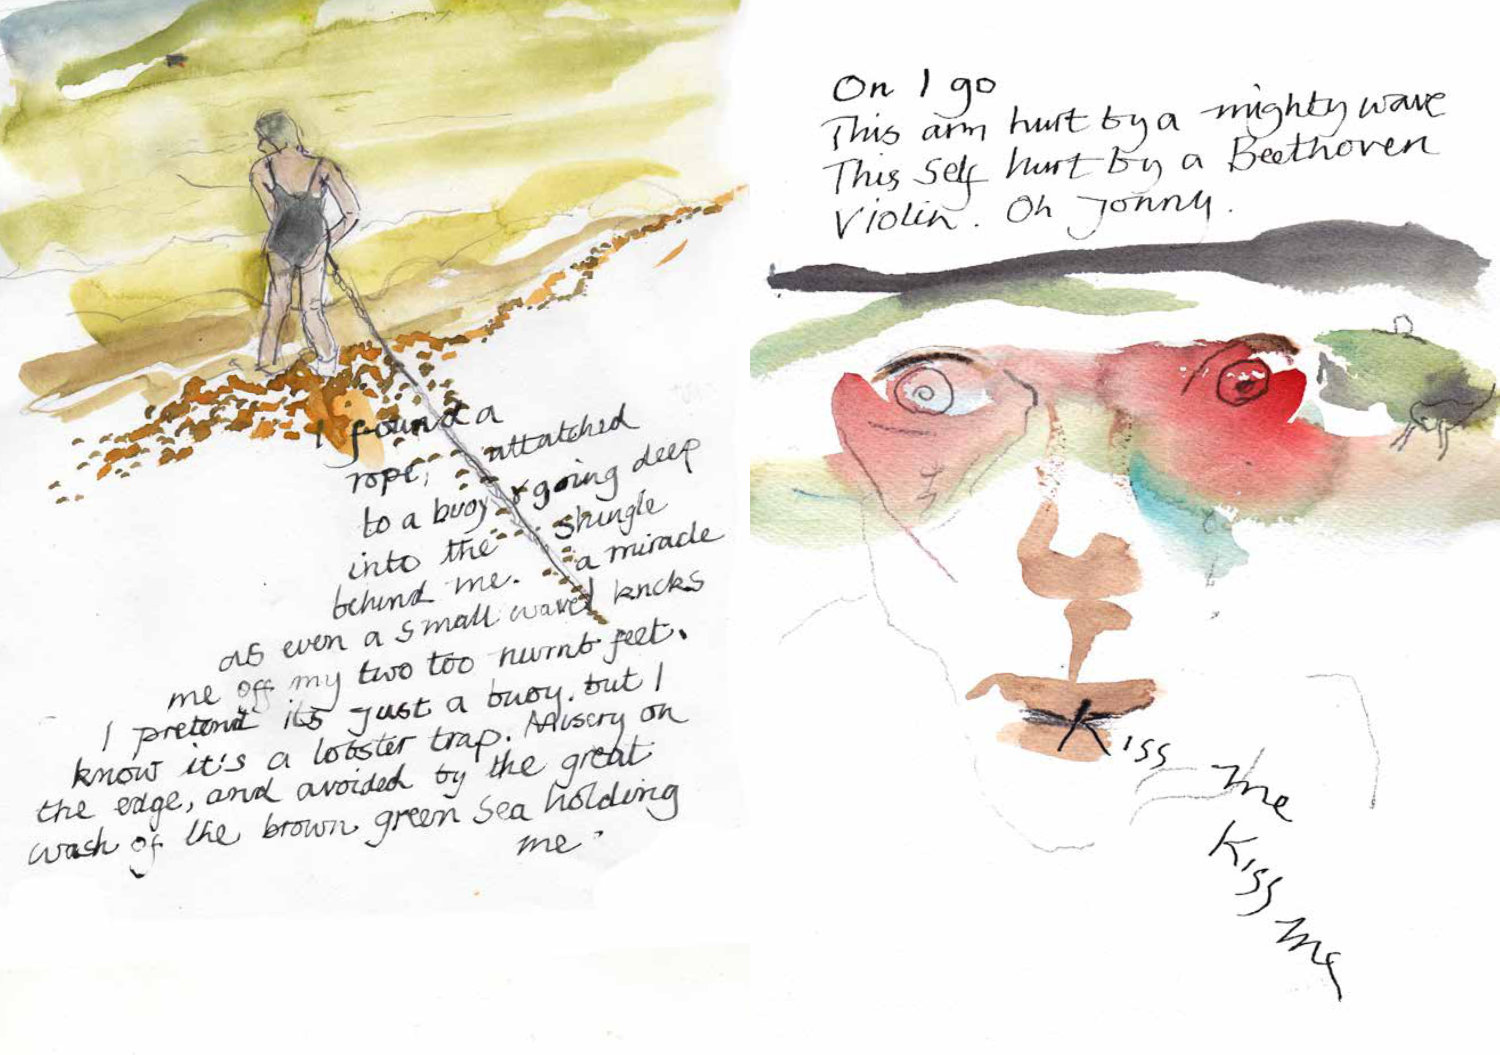 I found a
rope, attatched
to a buoy & going deep
into the shingle
behind me. a miracle
as even a small wave knocks
me off my two too numb feet.
I pretend its just a buoy. but I
know it's a lobster trap. Misery on
the edge, and avoided by the great
wash of the brown green sea holding
me.
On I go
This arm hurt by a mighty wave
This self hurt by a Beethoven
Violin. Oh Jonny.
Kiss me
Kiss me